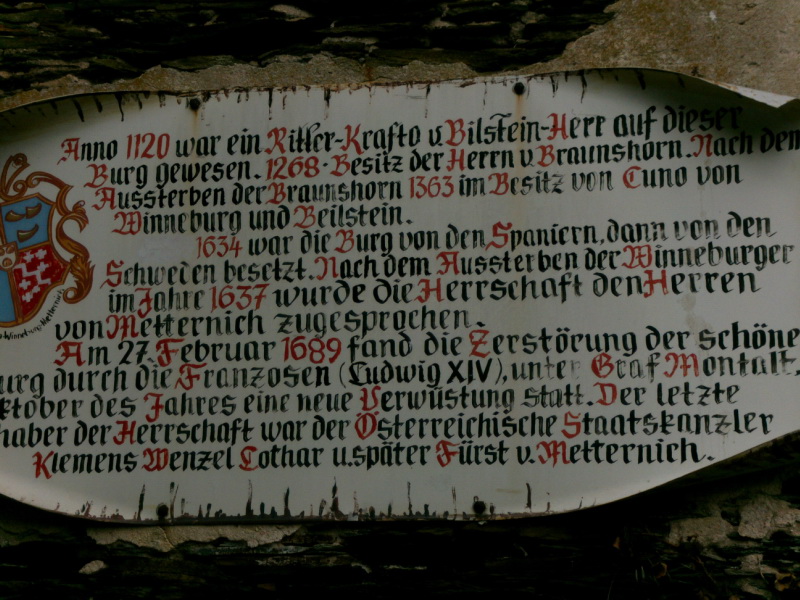 Anno 1120 war ein Ritter-Krafto v. Bilstein-Herr auf dieser
Burg gewesen. 1268-Besitz der Herrn v. Braunshorn. Nach dem
Aussterben der Braunshorn 1363 im Besitz von Cuno von
Winneburg und Beilstein.
1634 war die Burg von den Spaniern, dann von den
Schweden besetzt. Nach dem Aussterben der Winneburger
im Jahre 1637 wurde die Herrschaft den Herren
von Metternich zugesprochen.
Am 27. Februar 1689 fand die Zerstörung der schöne
urg durch die Franzosen (Ludwig XIV), unter Graf Montalt,
ktober des Jahres eine neue Verwüstung statt. Der letzte
haber der Herrschaft war der Österreichische Staatskanzler
Klemens Wenzel Lothar u. später Fürst v. Metternich.